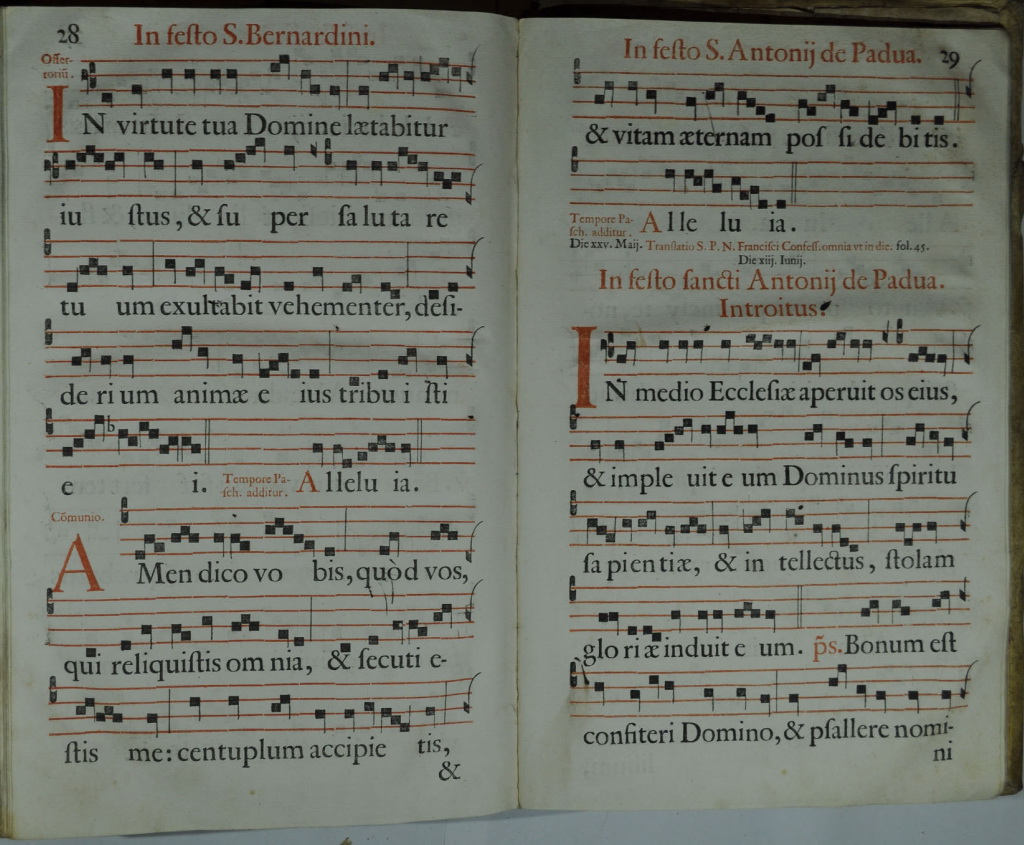 28 In feſto S. Bernardini.
Offer-
toriũ.
IN virtute tua Domine lætabitur
iu ſtus, & ſu per ſa lu ta re
tu um exultabit vehementer, deſi-
de ri um animæ e ius tribu i ſti
e i. Tempore Pa-
ſch. additur. Allelu ia.
Cõmunio.
AMen dico vo bis, quòd vos,
qui reliquiſtis om nia, & ſecuti e-
ſtis me: centuplum accipie tis,
&
In feſto S. Antonij de Padua. 29
& vitam æternam poſ ſi de bi tis.
Tempore Pa-
ſch. additur. Alle lu ia.
Die xxv. Maij. Tranſlatio S. P. N. Franciſci Confeſſ. omnia vt in die. fol. 45.
Die xiij. Iunij.
In feſto ſancti Antonij de Padua.
Introitus.
IN medio Eccleſiæ aperuit os eius,
& imple uit e um Dominus ſpiritu
ſa pien tiæ, & in tellectus, ſtolam
glo ri æ induit e um. p̃s. Bonum eſt
confiteri Domino, & pſallere nomi-
ni